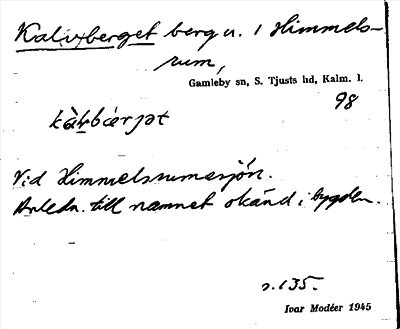 Kalvberget berg u. 1 Himmels-
rum,
Gamleby sn, S. Tjusts hd, Kalm. l.
98
Vid Himmelsrumesjön.
Anledn. till namnet okänd i bygden.
s. 135.
Ivar Modéer 1945